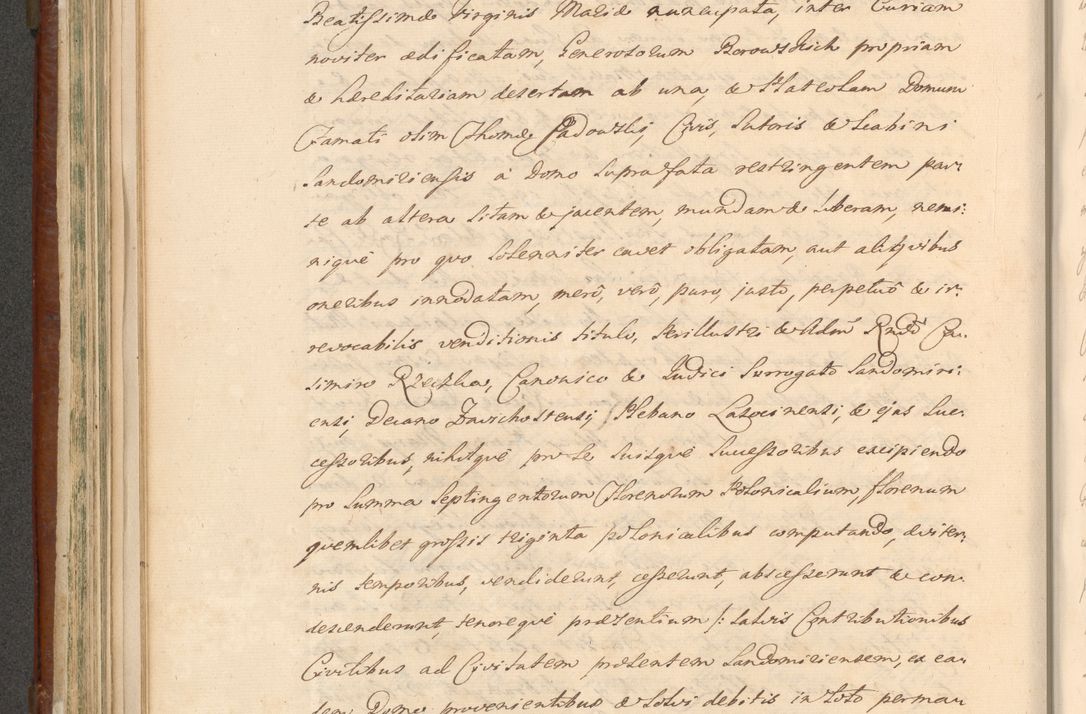 Beatissimæ Virginis Mariæ nuncupata, inter Curiam
noviter ædificatam, Generosorum Borowskich propriam
& hæreditariam desertam ab una, & Plateolam Domum
Famati olim Thomæ Padowskj, Civis, Sutoris & Scabini
Sandomiriensis à Domo Suprafata restringentem par:
te ab altera Sitam & jacentem, mundam & liberam, nemi:
niquè pro quo Solenniter cavet obligatam, aut aliquibus
oneribus innodatam, merô, verô, puro, justô, perpetuô & ir:
revocabilis venditionis titulo, Perillustri & Adm Rndô Ca:
simiro Rzeczka, Canonico & Judici Surrogato Sandomiri:
ensi, Decano Zavichostensi, Plebano Lasocinensi, & ejas Suc:
cessoribus, nihilquè pro Se Suisquè Successoribus excipiendo
pro Summa Septingentorum Florenorum Polonicalium, florenum
quemlibet grossis triginta polonicalibus computando, æviter:
nis temporibus, vendiderunt, cesserunt, abscesserunt & con:
descenderunt, tenorequè præsentium /: Salvis Contributionibus
Civilibus ad Civitatem præsentem Sandomiriensem, ex ea:
dem Domo provenientibus & Solvi debitis in Toto perman